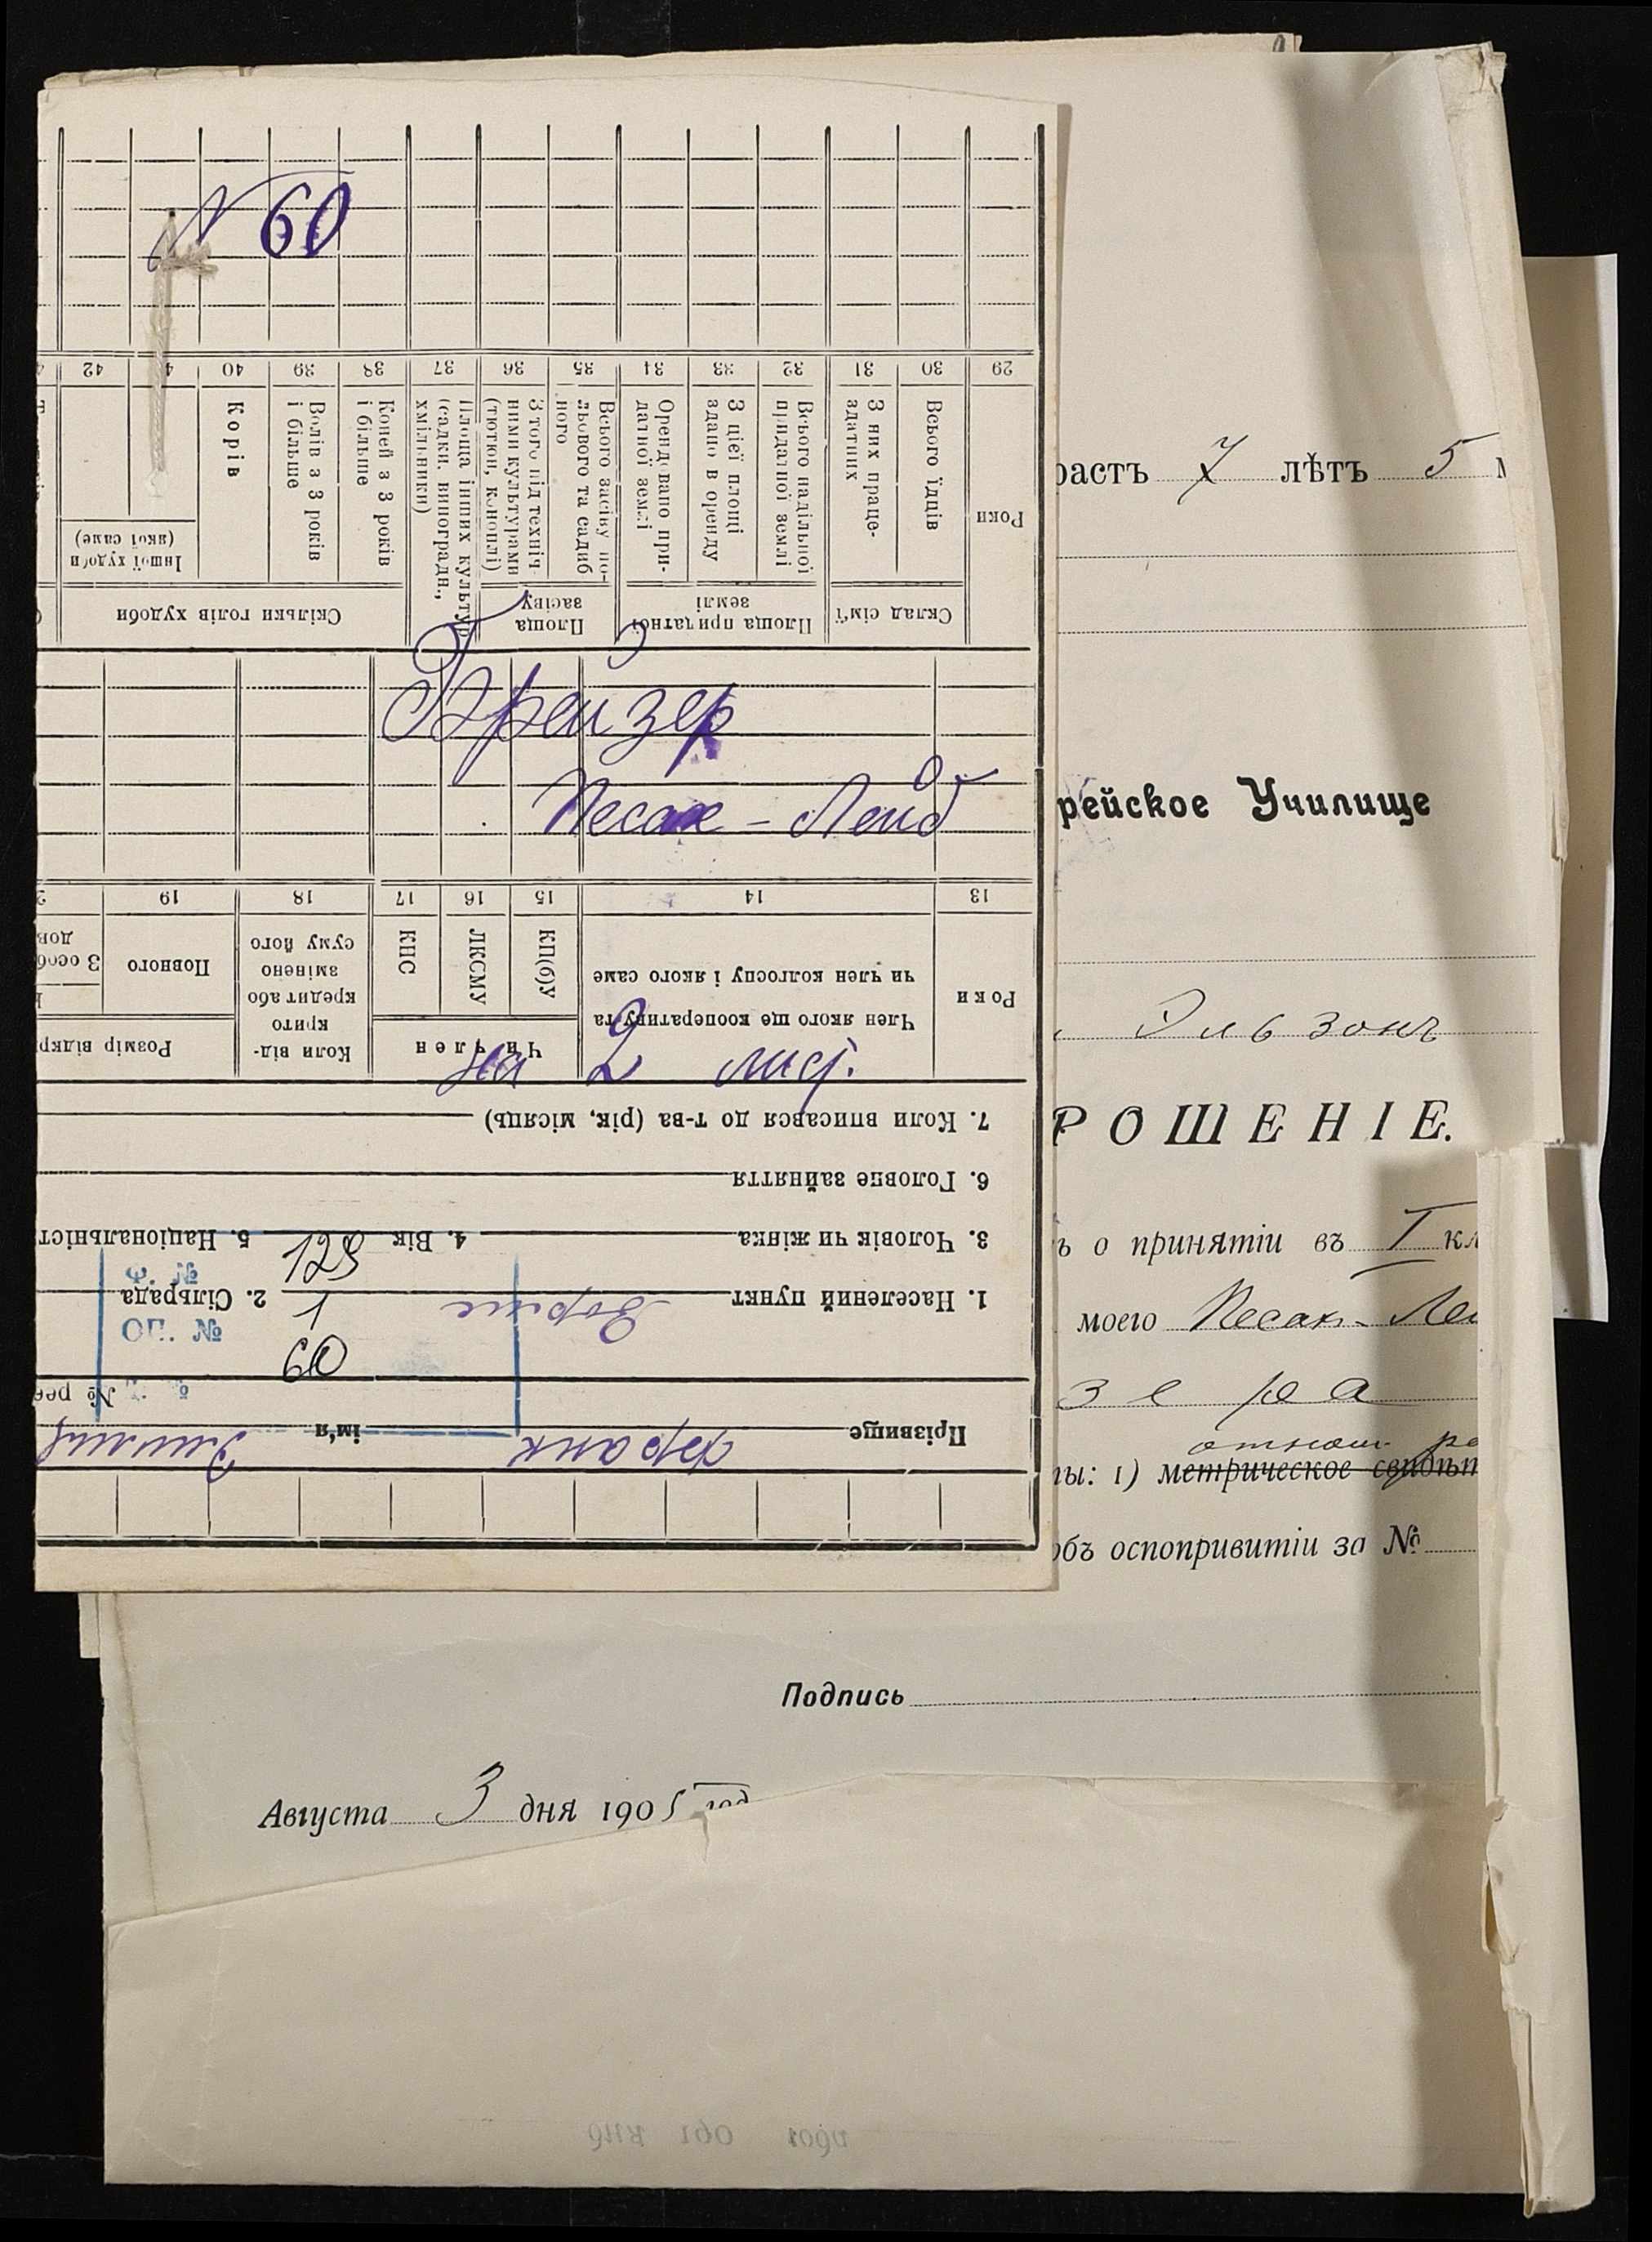 № 60
29 30 31 32 33 34 35 36 37 38 39 40 42
Роки
Всього їдців
З них праце-
здатних
Всього надільної
придатної землі
З цієї площі
здано в оренду
Орендовано при-
датної землі
Всього засіву по-
льового та садиб
ного
З того під техніч-
ними культурами
(тютюн, коноплі)
Площа інших культур
(садки, виноградн.,
хмільники)
Коней з 3 років
і більше
Волів з 3 років
і більше
Корів
Іншої худоби
(якої саме)
Склад сім'ї
Площа придатної
землі
Площа
засіву
Скільки голів худоби
Крейзер
Песах - Лейб
13 14 15 16 17 18 19
Роки
Член якого ще кооперативу та
чи член колгоспу і якого саме
Чи член
КП(б)У
ЛКСМУ
КНС
Коли від-
крито
кредит або
змінено
суму його
Розмір відкр
Повного
З особ
дов
на 2 лист.
7. Коли вписався до т-ва (рік, місяць)
6. Головне зайняття
3. Чоловік чи жінка 4. Вік 5. Національніст
1. Населений пункт 2. Сільрада
№ Ф.
№ ОП.
125
1
60
Прізвище Франк ім'я
растъ 7 лѣтъ 5 м
рейское Училище
Эльзонъ
РОШЕНІЕ.
ъ о принятіи въ I кл
моего Песах- Лей
зера
отнош. ра
ты: 1) метрическое свидѣт
объ оспопривитіи за №
Подпись
Августа 3 дня 1905 год